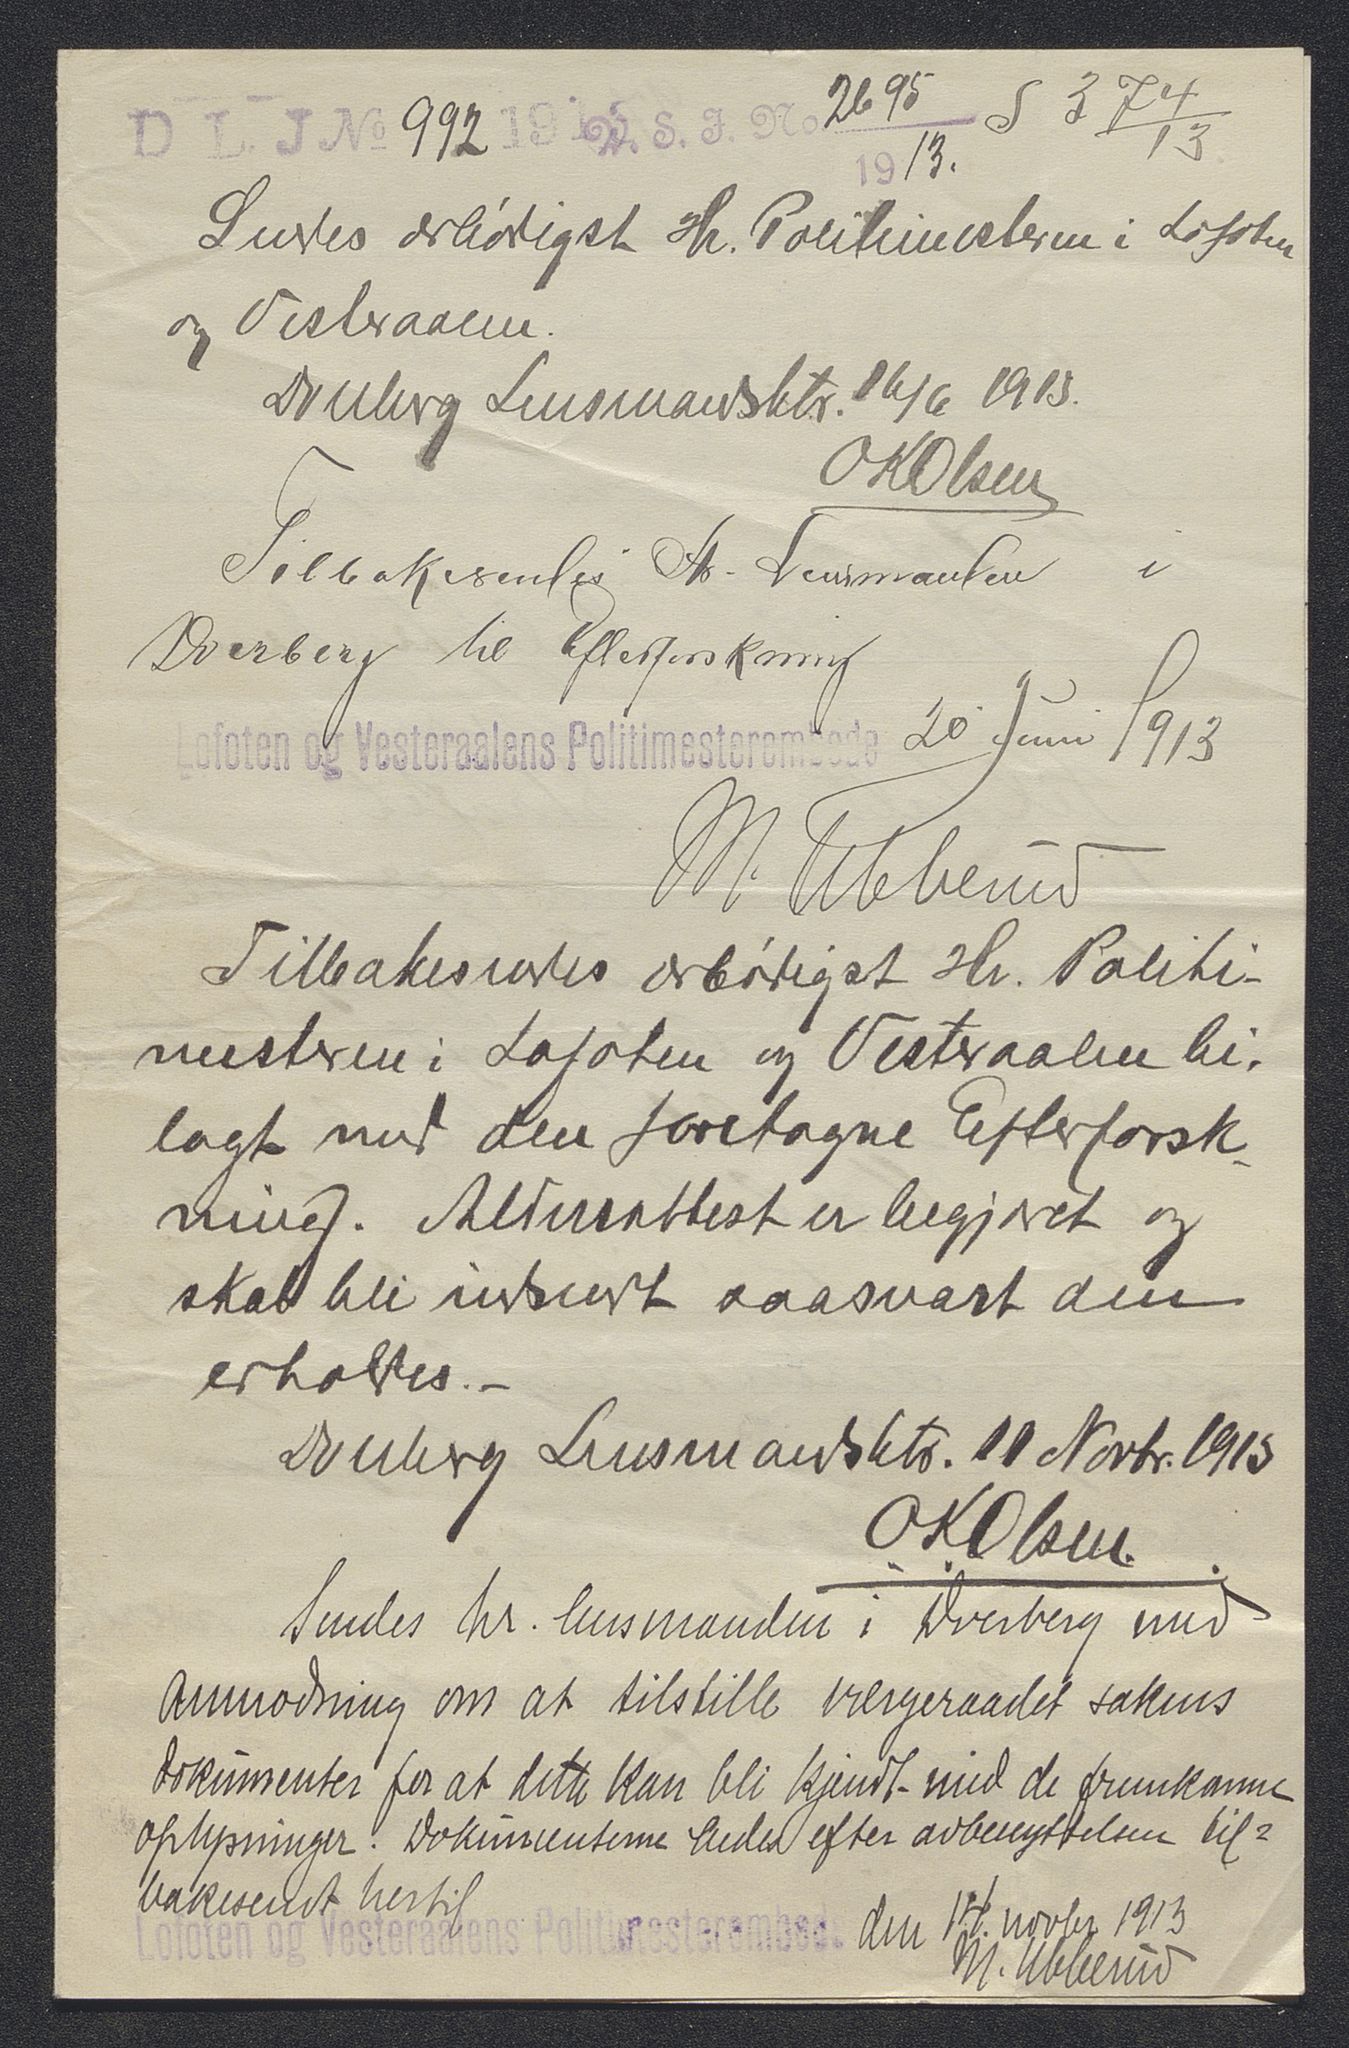 D L. J № 992 191 V. S. J. No 2695 / 1913. S 374/13
Sendes ærbödigst Hr. Politimesteren i Lofoten
og Vesteraalen.
Dverberg Lensmandsktr. 16/6 1913.
OKOlsen
Tilbakesendes Hr. Lensmanden i
Dverberg til Efterforskning
Lofoten og Vesteraalens Politimesterembede 20 Juni 1913
M. Ubberud
Tilbakesendes ærbödigst Hr. Politi-
mesteren i Lofoten og Vesteraalen bi-
lagt med den foretagne Efterforsk-
ning. Aldersattest er begjæret og
skal bli indsendt saasnart den
erholdes.-
Dverberg Lensmandsktr. 11 Novbr. 1913
OKOlsen.
Sendes hr. lensmanden i Dverberg med
Anmodning om at tilstille værgeraadet sakens
dokumenter for at dette kan bli kjendt med de fremkomne
oplysninger. Dokumenterne bedes efter avbenyttelsen til=
bakesendt hertil
Lofoten og Vesteraalens Politimesterembede den 14. novbr 1913
M. Ubberud